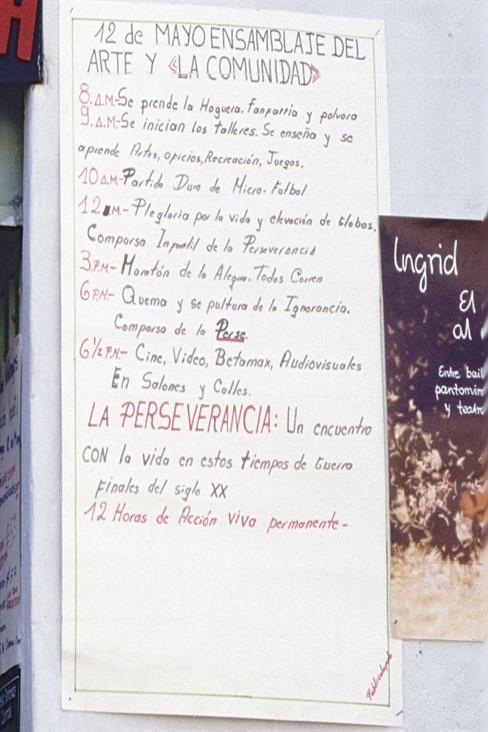 12 de MAYO ENSAMBLAJE DEL
ARTE Y «LA COMUNIDAD»
8.A.M-Se prende la Hoguera. Fanfarria y polvora
9.A.M-Se inician los talleres. Se enseña y se
aprende Artes, oficios, Recreación, Juegos.
10 A.M-Partido Duro de Micro-Futbol
12 M.-Plegloria por la vida y elevación de Globos.
Comparsa Infantil de la Perseverancia
3 P.M-Maratón de la Alegria. Todos Corren
6 P.M- Quema y se pultura de la Ignorancia.
Comparsa de la Perse.
6½ P.M- Cine, Video, Betamax, Audiovisuales
En Salones y Calles.
LA PERSEVERANCIA: Un encuentro
CON la vida en estos tiempos de Guerra
Finales del siglo XX
12 Horas de Acción viva permanente-
Ingrid
El
al
Entre bail
pantomim
y teatro